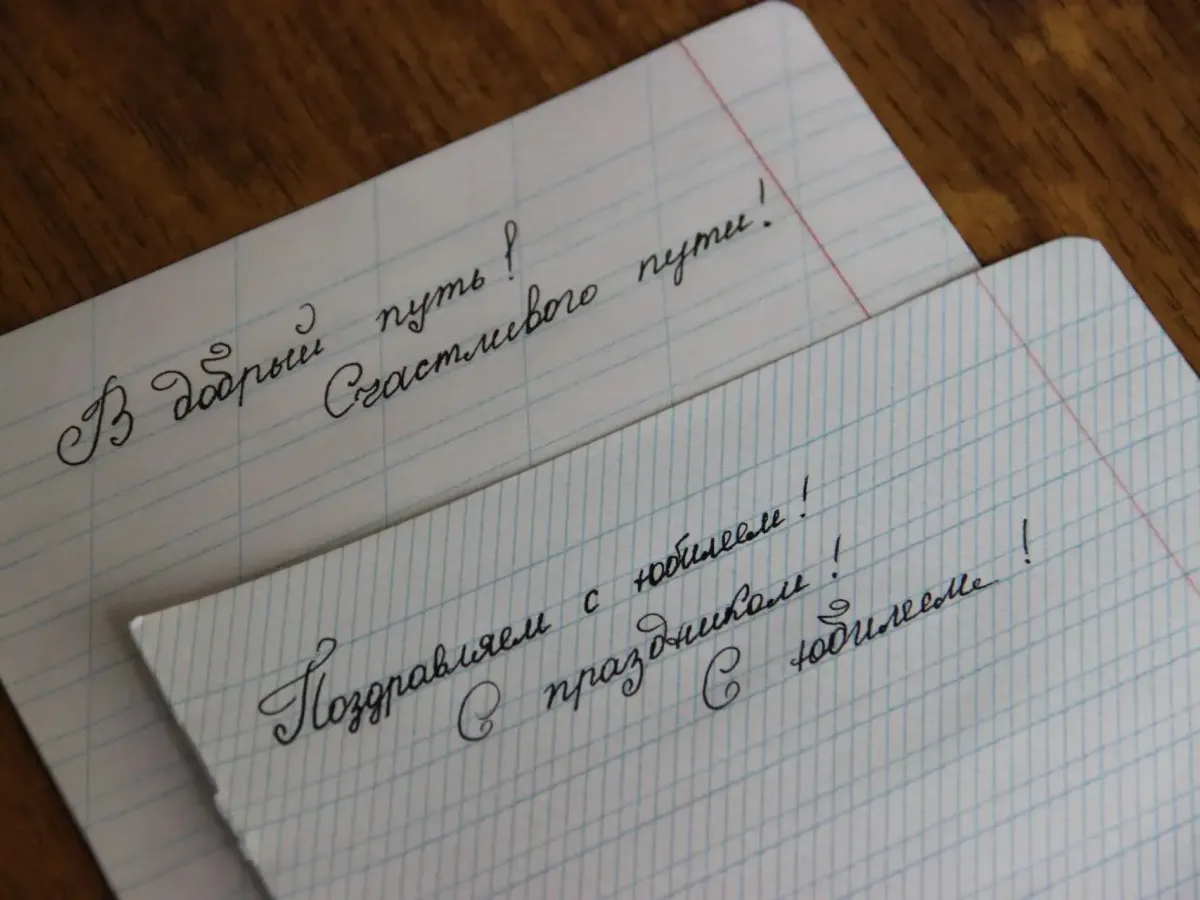 В добрый путь!
Счастливого пути!
Поздравляем с юбилеем!
С праздником!
С юбилеем!